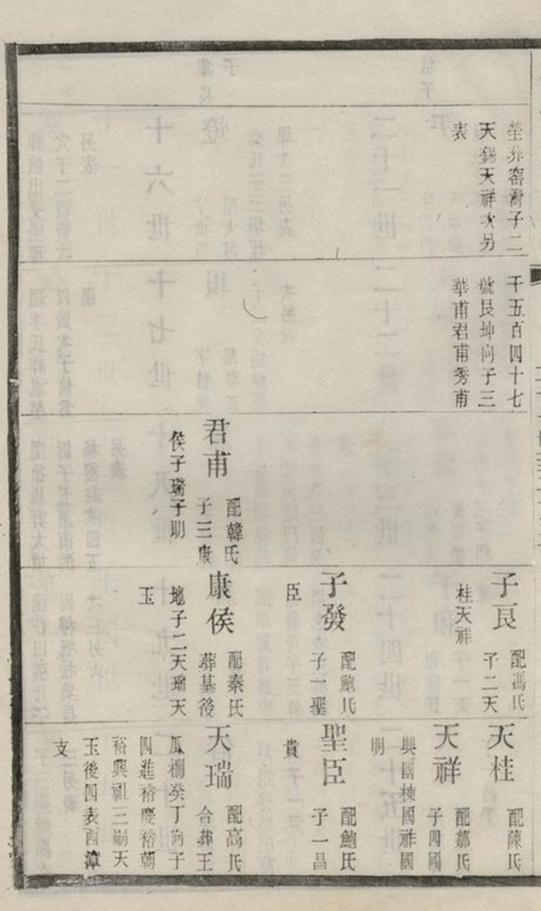 塋莽窑灣子二
天錫天祥次另
表
千五百四十七
號艮坤向子三
華甫君甫秀甫
君甫
配韓氏
子三康
侯子瑞子明
子良
配馮氏
子二天
桂天祥
子發
配鮑氏
子一聖
臣
康侯
配秦氏
葬基後
地子二天瑞天
玉
天桂
配陳氏
天祥
配鄒氏
子四國
興國棟國祚國
明
聖臣
配鮑氏
子一昌
貴
天瑞
配高氏
合葬王
瓜棚癸丁向子
四進裕慶裕朝
裕興祖三嗣天
玉後四表酉漳
支